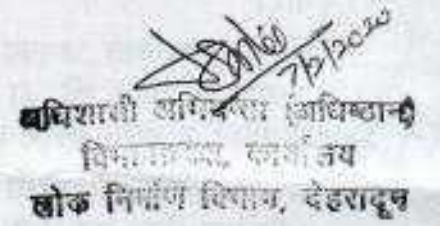 7/2/2020
अधिशासी अभियन्ता (अधिष्ठान)
कार्यालय
लोक निर्माण विभाग, देहरादून